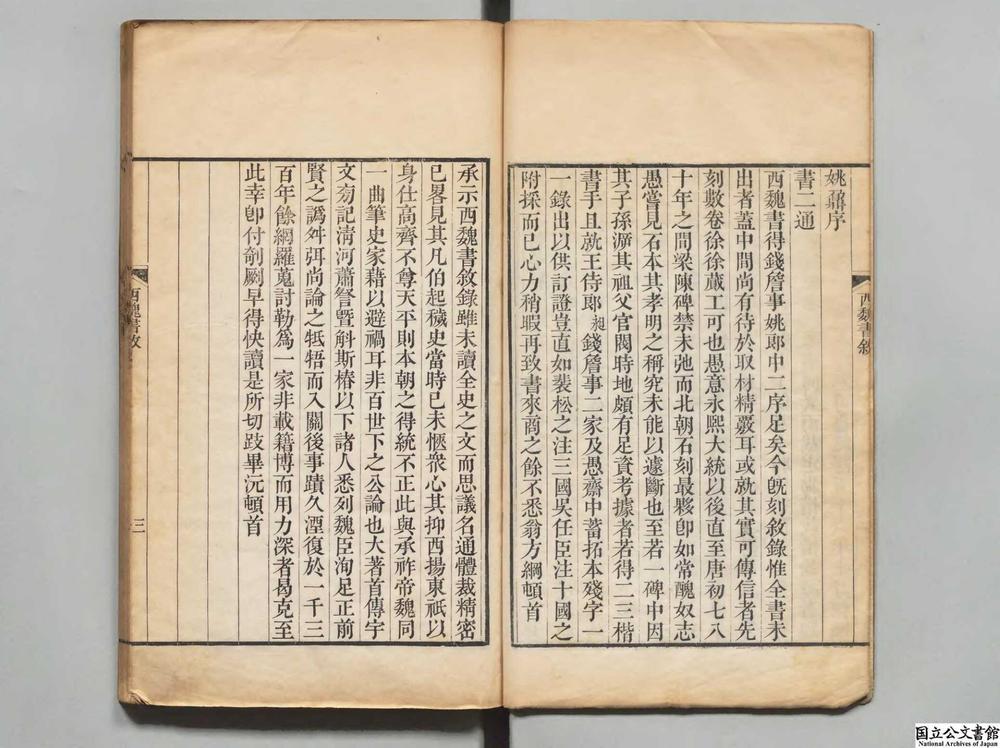 姚鼐序
書二通
西魏書得錢詹事姚郎中二序足矣今旣刻敘錄惟全書未
出者蓋中間尚有待於取材精覈耳或就其實可傳信者先
刻數卷徐徐蕆工可也愚意永熙大統以後直至唐初七八
十年之間梁陳碑禁未弛而北朝石刻最夥卽如常醜奴志
愚嘗見石本其孝明之稱究未能以遽斷也至若一碑中因
其子孫溯其祖父官閥時地頗有足資考據者若得二三楷
書手且就王侍郎昶錢詹事二家及愚齋中蓄拓本殘字一
一錄出以供訂證豈直如裴松之注三國吳任臣注十國之
附採而已心力稍暇再致書來商之餘不悉翁方綱頓首
西魏書敘
承示西魏書敘錄雖未讀全史之文而思議名通體裁精密
已畧見其凡伯起穢史當時已未愜衆心其抑西揚東祇以
身仕高齊不尊天平則本朝之得統不正此與承祚帝魏同
一曲筆史家藉以避禍耳非百世下之公論也大著首傳宇
文㫄記清河蕭詧暨斛斯椿以下諸人悉列魏臣洵足正前
賢之譌舛弭尚論之牴牾而入關後事蹟久湮復於一千三
百年餘網羅蒐討勒爲一家非載籍博而用力深者曷克至
此幸卽付剞劂早得快讀是所切跂畢沅頓首
西魏書敘
三
国立公文書館
National Archives of Japan